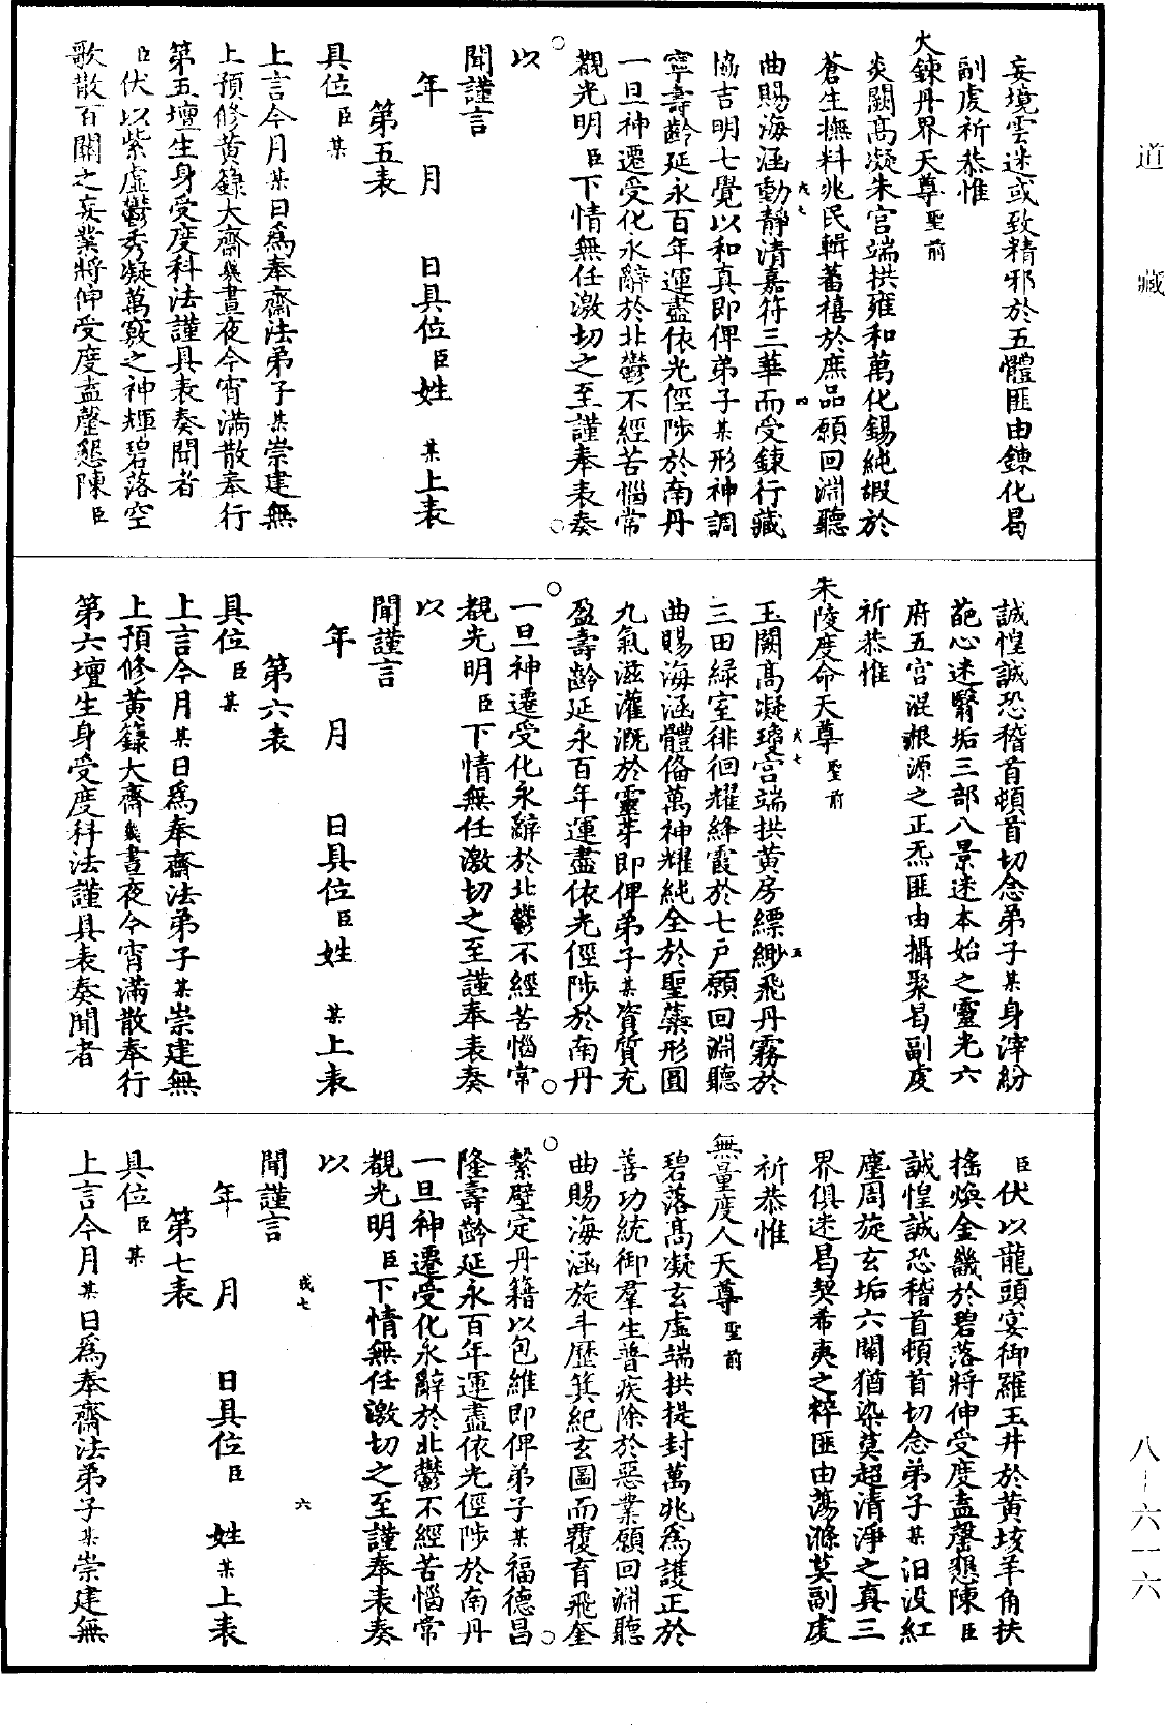 道藏
八—六一六
妄境雲迷或致精邪於五體匪由鍊化曷
副虔祈恭惟
火鍊丹界天尊聖前
炎闕高凝朱宮端拱雍和萬化錫純嘏於
蒼生撫料兆民輯蕃禧於庶品願回淵聽
戌七 四
曲賜海涵動靜清嘉符三華而受鍊行藏
協吉明七覺以和真即俾弟子某形神調
寧壽齡延永百年運盡依光徑陟於南丹
一旦神遷受化永辭於北鬱不經苦惱常
覩光明臣下情無任激切之至謹奉表奏
以
聞謹言
年 月 日具位臣姓 某上表
第五表
具位臣某
上言今月某日爲奉齋法弟子某崇建無
上預修黃籙大齋幾晝夜今宵滿散奉行
第五壇生身受度科法謹具表奏聞者
臣伏以紫虛鬱秀凝萬竅之神輝碧落空
歌散百關之妄業將伸受度盍罄懇陳臣
誠惶誠恐稽首頓首切念弟子某身滓紛
葩心迷腎垢三部八景迷本始之靈光六
府五宮混根源之正炁匪由攝聚曷副虔
祈恭惟
朱陵度命天尊聖前
戌七 五
玉闕高凝瓊宮端拱黃房縹緲飛丹霧於
三田綠室徘徊耀絳霞於七戶願回淵聽
曲賜海涵體俻萬神耀純全於聖藥形圓
九氣滋灌溉於靈芽即俾弟子某資質充
盈壽齡延永百年運盡依光徑陟於南丹
一旦神遷受化永辭於北鬱不經苦惱常
覩光明臣下情無任激切之至謹奉表奏
以
聞謹言
年 月 日具位臣姓 某上表
第六表
具位臣某
上言今月某日爲奉齋法弟子某崇建無
上預修黃籙大齋幾晝夜今宵滿散奉行
第六壇生身受度科法謹具表奏聞者
臣伏以龍頭宴御羅玉井於黃垓羊角扶
搖煥金譏於碧落將伸受度盍罄懇陳臣
誠惶誠恐稽首頓首切念弟子某汩没紅
塵周旋玄垢六關猶染莫超清淨之真三
界俱迷曷契希夷之粹匪由蕩滌莫副虔
祈恭惟
無量度人天尊聖前
碧落高凝玄虛端拱提封萬兆爲護正於
善功統御羣生普疾除於惡業願回淵聽
曲賜海涵旋斗歷箕紀玄圖而覆育飛奎
繫壁定丹籍以包維即俾弟子某福德昌
隆壽齡延永百年運盡依光徑陟於南丹
一旦神遷受化永辭於北鬱不經苦惱常
覩光明臣下情無任激切之至謹奉表奏
以
戌七 六
聞謹言
年 月 日具位臣 姓某上表
第七表
具位臣某
上言今月某日爲奉齋法弟子某崇建無